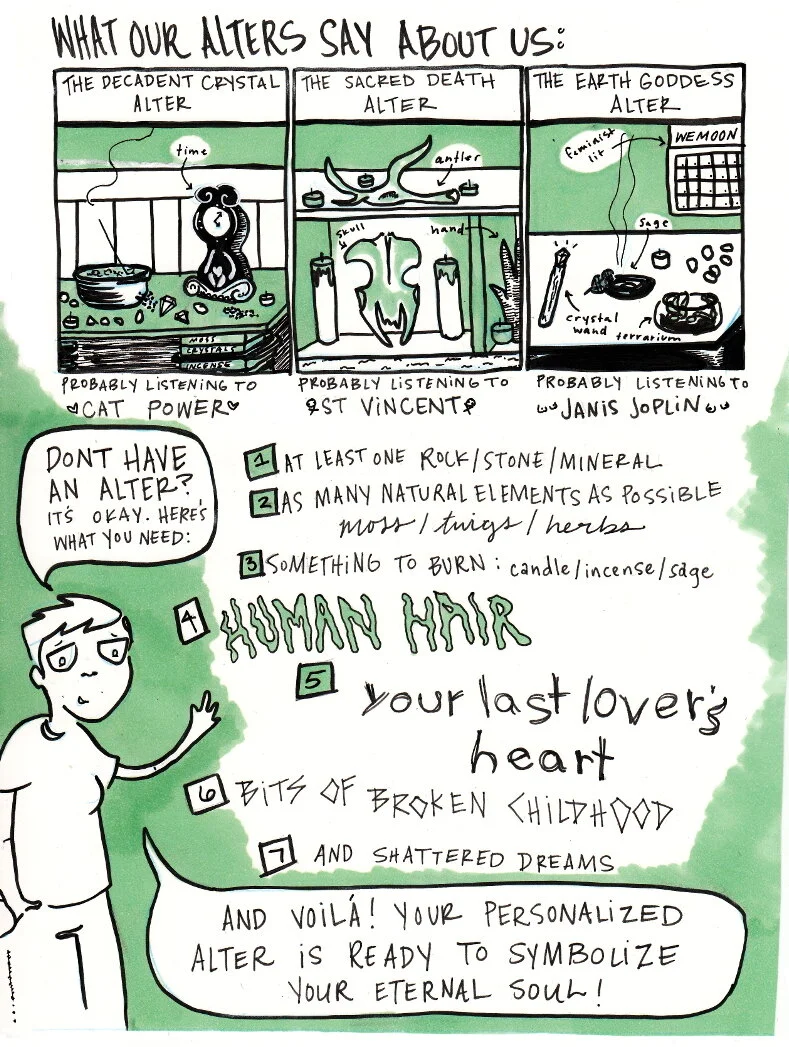 WHAT OUR ALTERS SAY ABOUT US:
THE DECADENT CRYSTAL
ALTER
time
MOSS
CRYSTALS
INCENSE
PROBABLY LISTENING TO
CAT POWER
THE SACRED DEATH
ALTER
antler
skull
hand
PROBABLY LISTENING TO
ST VINCENT
THE EARTH GODDESS
ALTER
feminist
lit
WEMOON
sage
crystal
wand
terrarium
PROBABLY LISTENING TO
JANIS JOPLIN
DONT HAVE
AN ALTER?
IT'S OKAY. HERE'S
WHAT YOU NEED:
1 AT LEAST ONE ROCK/STONE/MINERAL
2 AS MANY NATURAL ELEMENTS AS POSSIBLE
moss/twigs/herbs
3 SOMETHING TO BURN: candle/incense/sage
4 HUMAN HAIR
5 your last lover's
heart
6 BITS OF BROKEN CHILDHOOD
7 AND SHATTERED DREAMS
AND VOILÁ! YOUR PERSONALIZED
ALTER IS READY TO SYMBOLIZE
YOUR ETERNAL SOUL!